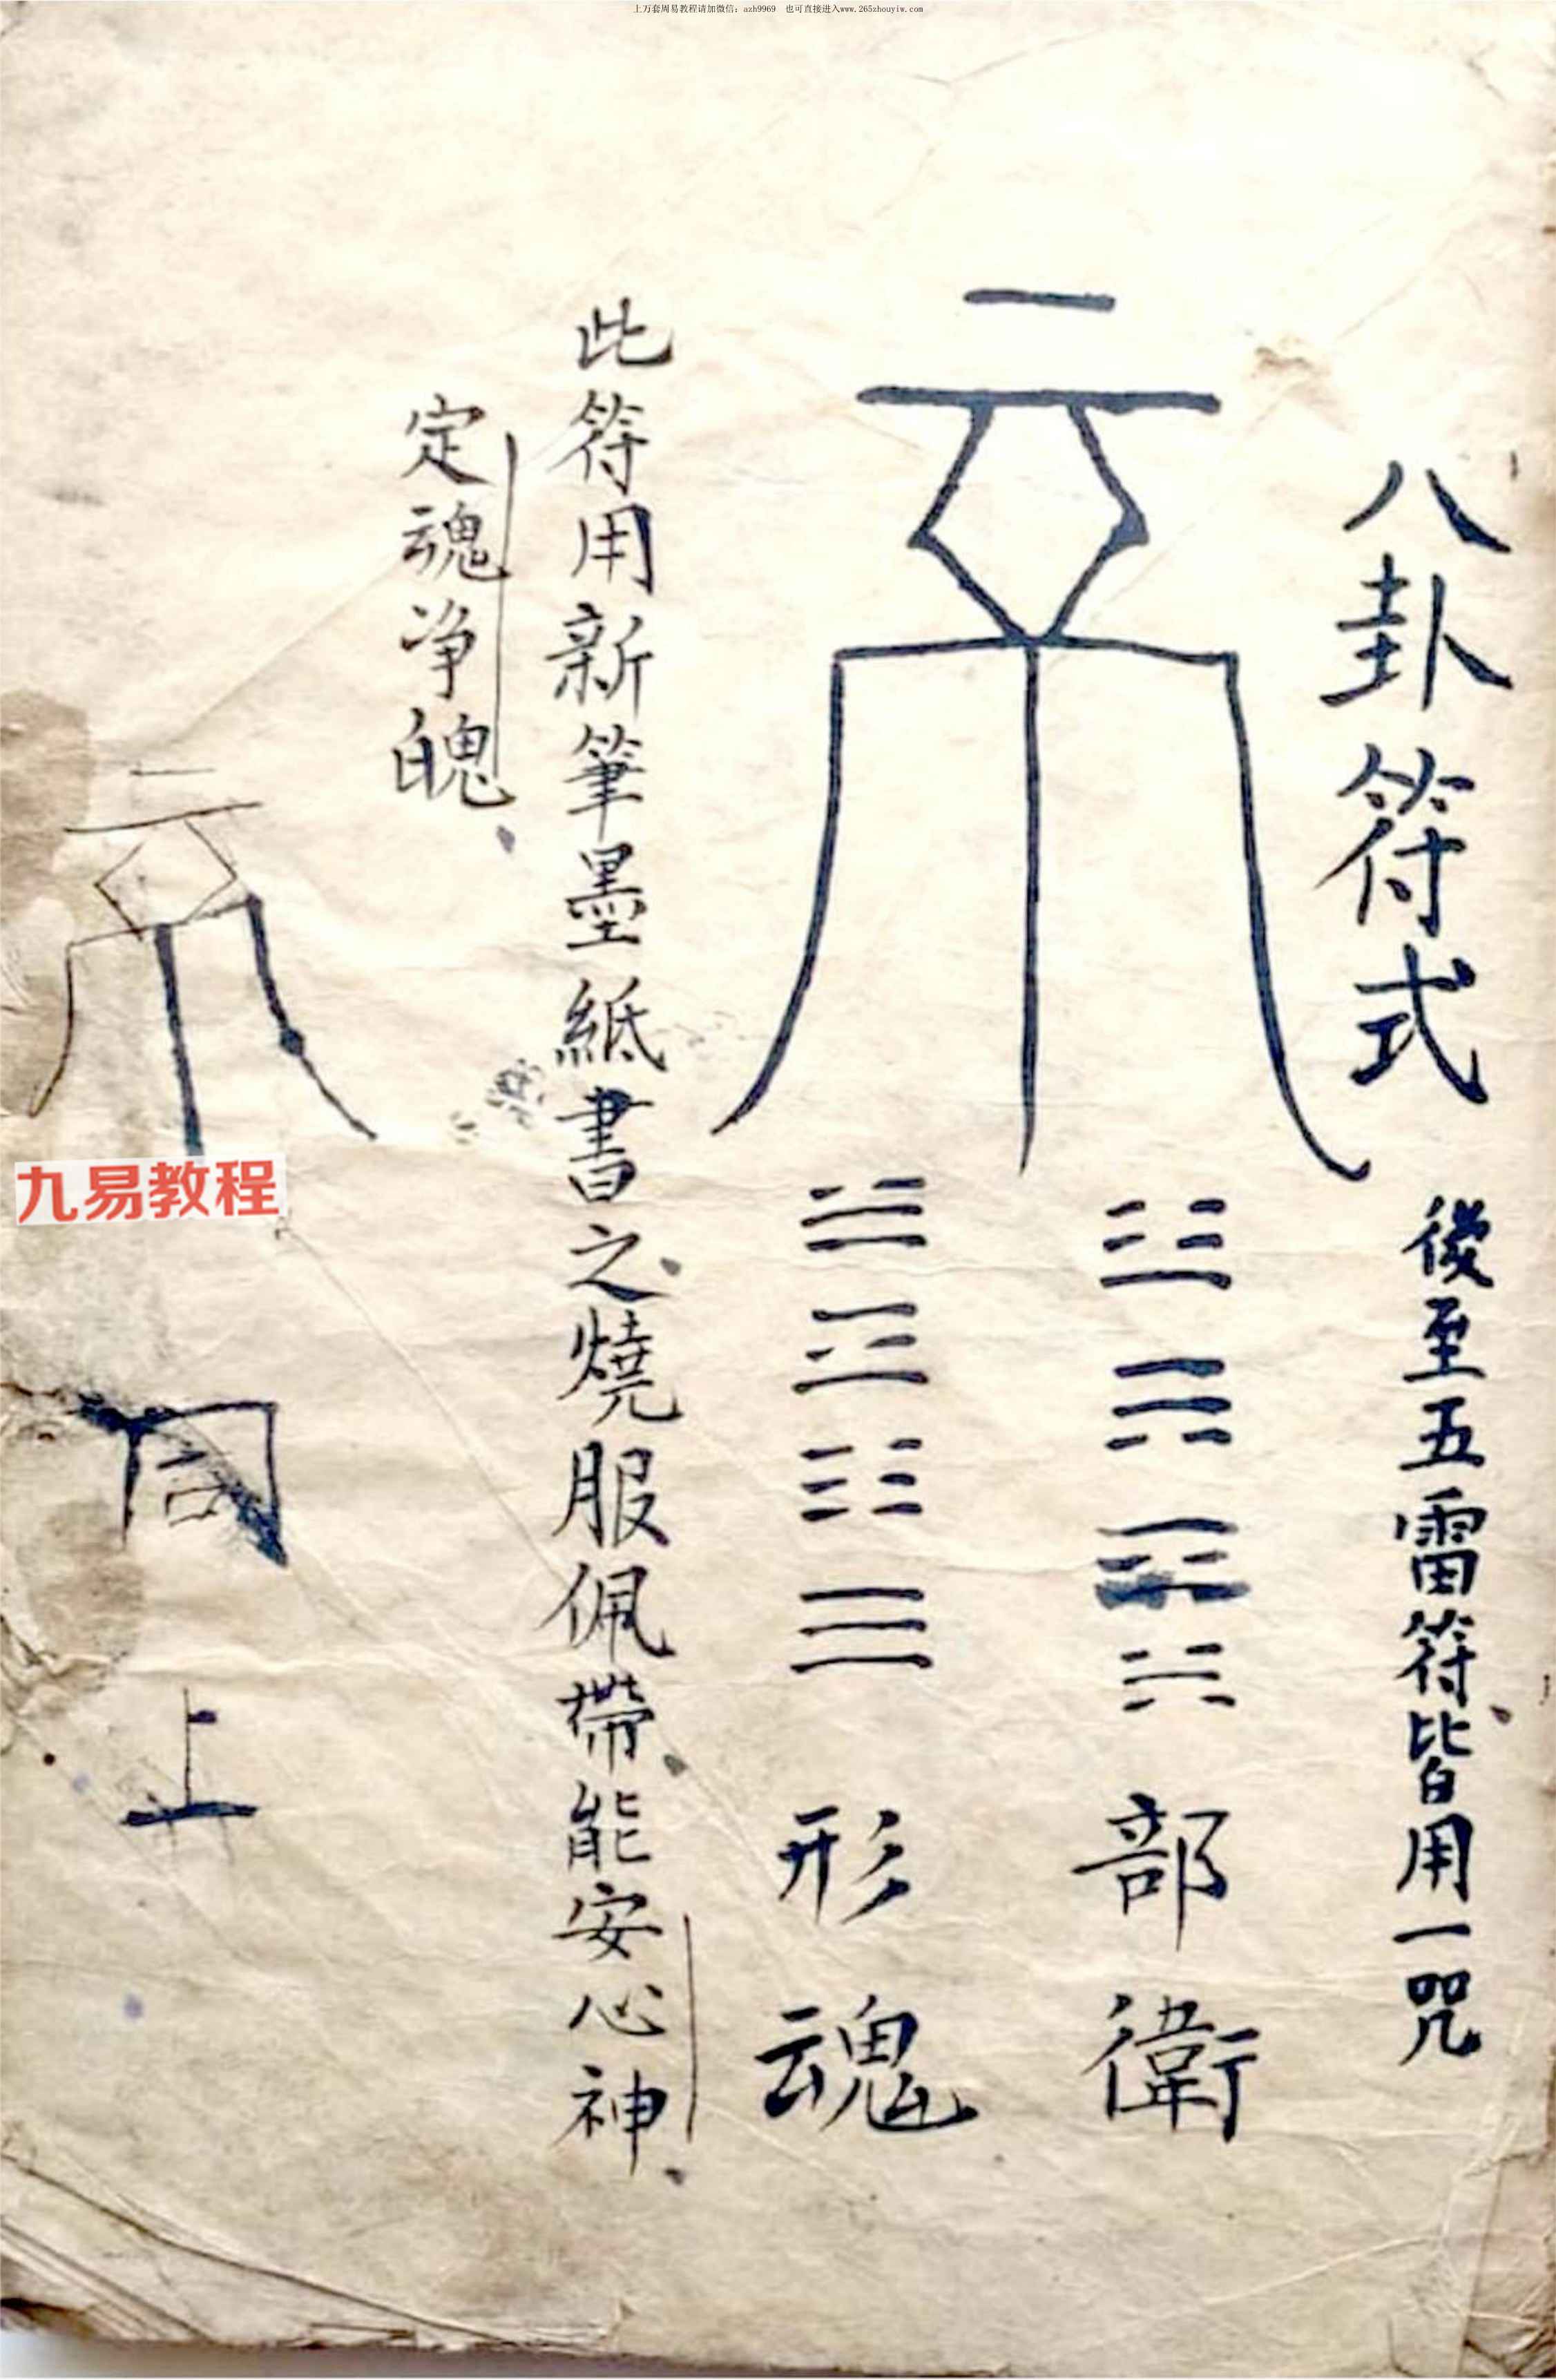 上万套周易教程请加微信：azh9969　也可直接进入www.265zhouyiw.com
八卦符式　後至五雷符皆用一咒
☳ ☴ ☶ ☵ 部衛
☱ ☲ ☷ ☰ 形魂
此符用新筆墨紙書之燒服佩帶能安心神
定魂净魄
同上
九易教程